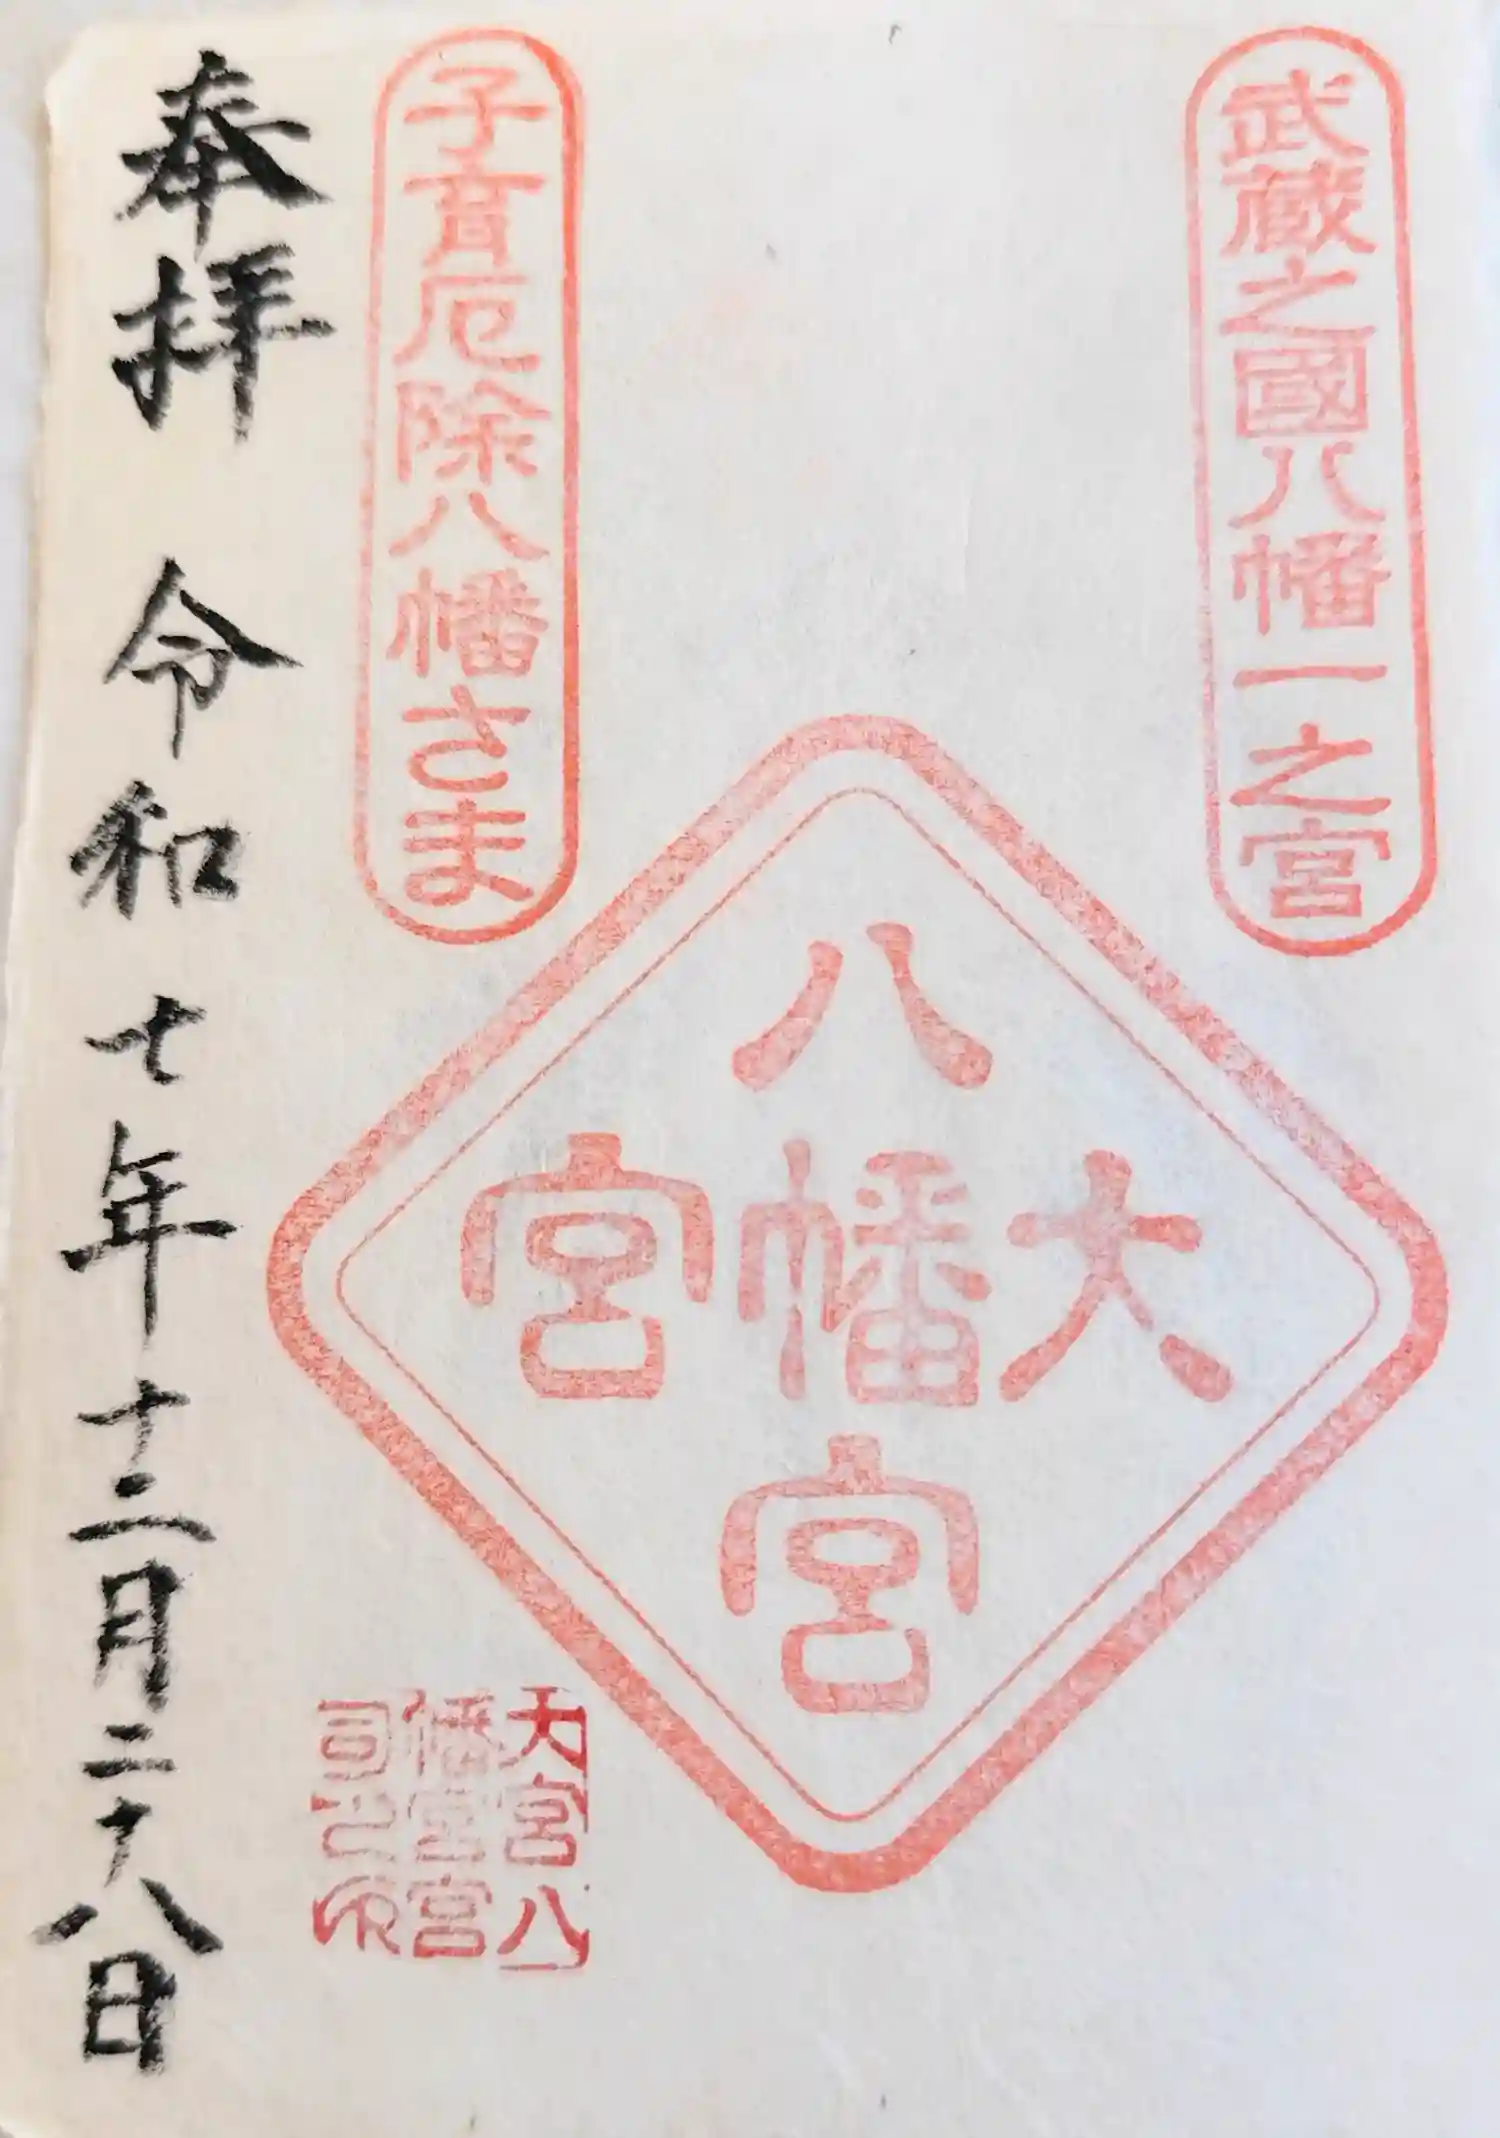 武蔵之國八幡一之宮
大宮
八幡宮
子育厄除八幡さま
大宮八
幡宮宮
司之印
奉拝 令和七年十二月二十八日